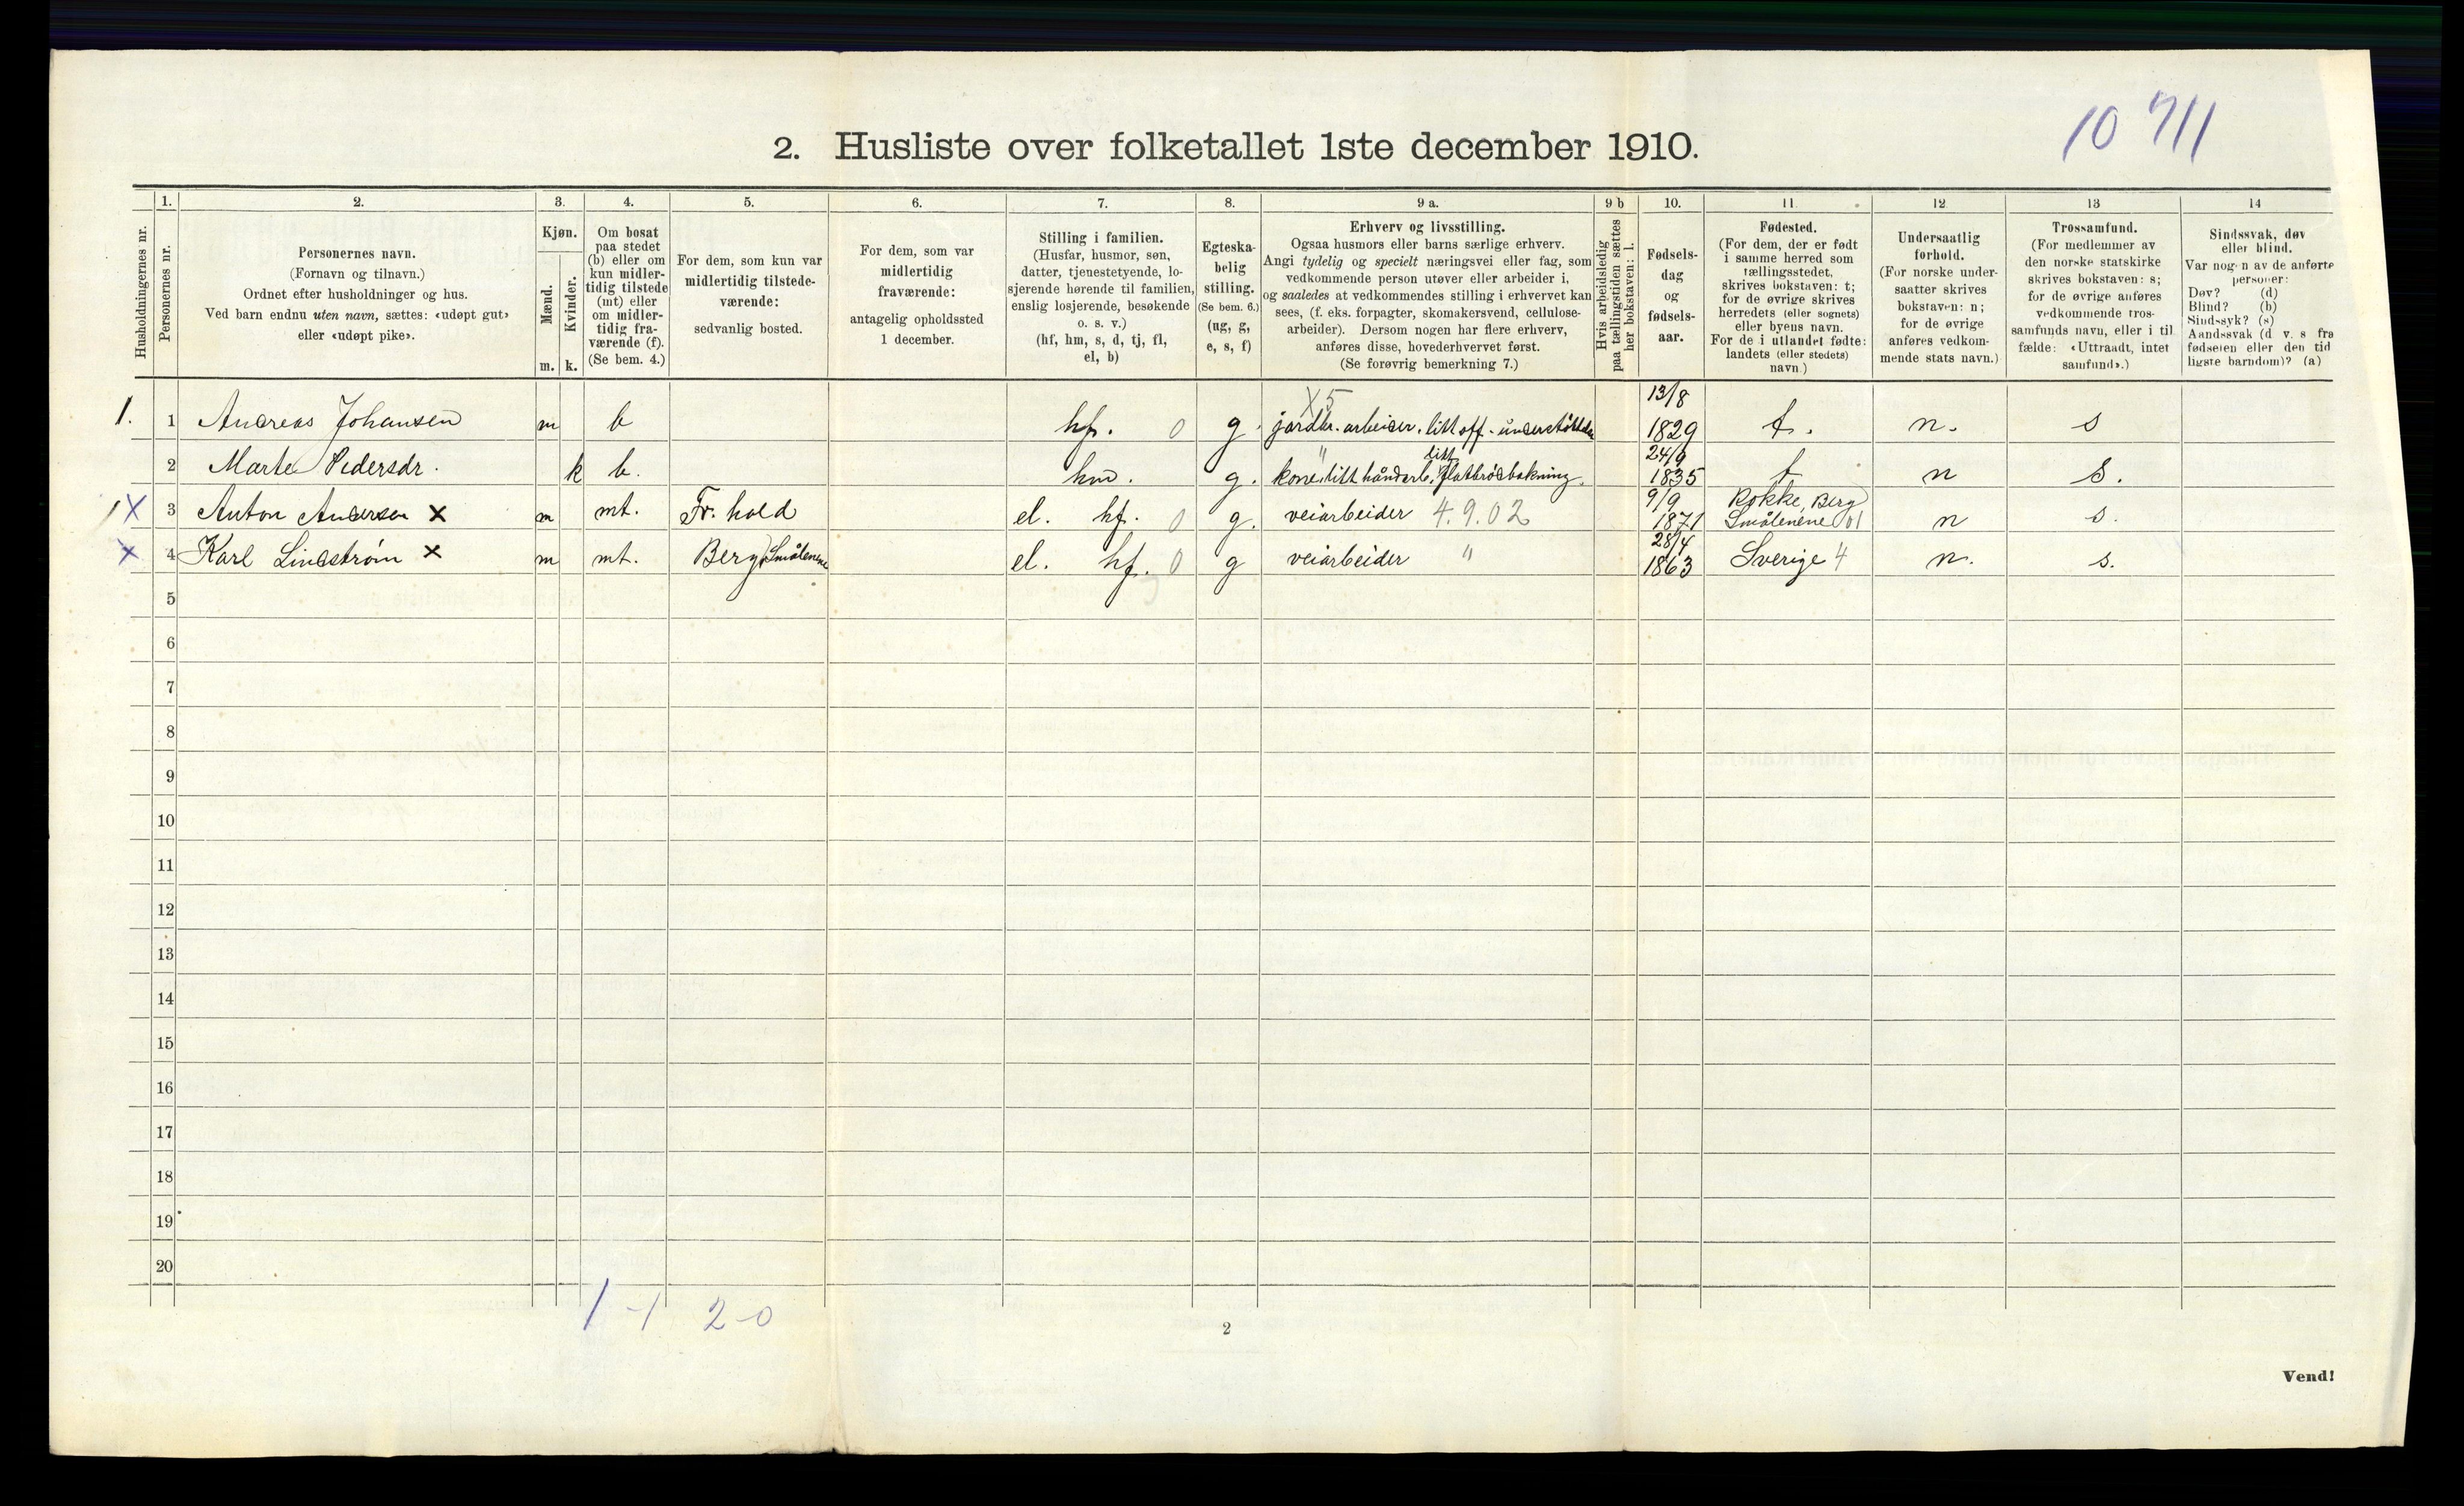 10 711
2. Husliste over folketallet 1ste december 1910.
Husholdningernes nr.
1.
Personernes nr.
2.
Personernes navn.
(Fornavn og tilnavn.)
Ordnet efter husholdninger og hus.
Ved barn endnu uten navn, sættes: «udøpt gut»
eller «udøpt pike».
3.
Kjøn.
Mænd.
Kvinder.
m. k.
4.
Om bosat
paa stedet
(b) eller om
kun midler-
tidig tilstede
(mt) eller
om midler-
tidig fra-
værende (f).
(Se bem. 4.)
5.
For dem, som kun var
midlertidig tilstede-
værende:
sedvanlig bosted.
6.
For dem, som var
midlertidig
fraværende:
antagelig opholdssted
1 december.
7.
Stilling i familien.
(Husfar, husmor, søn,
datter, tjenestetyende, lo-
sjerende hørende til familien,
enslig losjerende, besøkende
o. s. v.)
(hf, hm, s, d, tj, fl,
el, b)
8.
Egteska-
belig
stilling.
(Se bem. 6.)
(ug, g,
e, s, f)
9 a.
Erhverv og livsstilling.
Ogsaa husmors eller barns særlige erhverv.
Angi tydelig og specielt næringsvei eller fag, som
vedkommende person utøver eller arbeider i,
og saaledes at vedkommendes stilling i erhvervet kan
sees, (f. eks. forpagter, skomakersvend, cellulose-
arbeider). Dersom nogen har flere erhverv,
anføres disse, hovederhvervet først.
(Se forøvrig bemerkning 7.)
9 b
Hvis arbeidsledig
paa tællingstiden sættes
her bokstaven: l.
10.
Fødsels-
dag
og
fødsels-
aar.
11
Fødested.
(For dem, der er født
i samme herred som
tællingsstedet,
skrives bokstaven: t;
for de øvrige skrives
herredets (eller sognets)
eller byens navn.
For de i utlandet fødte:
landets (eller stedets)
navn.)
12
Undersaatlig
forhold.
(For norske under-
saatter skrives
bokstaven: n;
for de øvrige
anføres vedkom-
mende stats navn.)
13
Trossamfund.
(For medlemmer av
den norske statskirke
skrives bokstaven: s;
for de øvrige anføres
vedkommende tros-
samfunds navn, eller i til
fælde: «Uttraadt, intet
samfund».)
14
Sindssvak, døv
eller blind.
Var nogen av de anførte
personer:
Døv? (d)
Blind? (b)
Sindssyk? (s)
Aandssvak (d v. s fra
fødselen eller den tid
ligste barndom)? (a)
X5 13/8
1. 1 Andreas Johansen m b hf. 0 g. jordbr. arbeider, litt off. understøttelse 1829 t. n. s
" litt 24/9
2 Marte Pedersdr. k b. hm. g. kone, litt håndarb. flatbrødbakning. 1835 t n s.
9/9 Rokke, Berg
1 X 3 Anton Andersen X m mt. Fr. hald el. hf. 0 g. veiarbeider 4.9.02 1871 Smålenene 01 n s.
28/4
X 4 Karl Lindstrøm X m mt. Berg, Smålenene el. hf. 0 g veiarbeider " 1863 Sverige 4 n. s.
5
6
7
8
9
10
11
12
13
14
15
16
17
18
19
20
1-1 2-0
2
Vend!